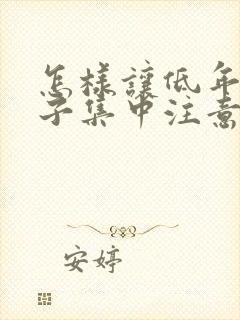 怎樣讓低年
子集中注意
安婷